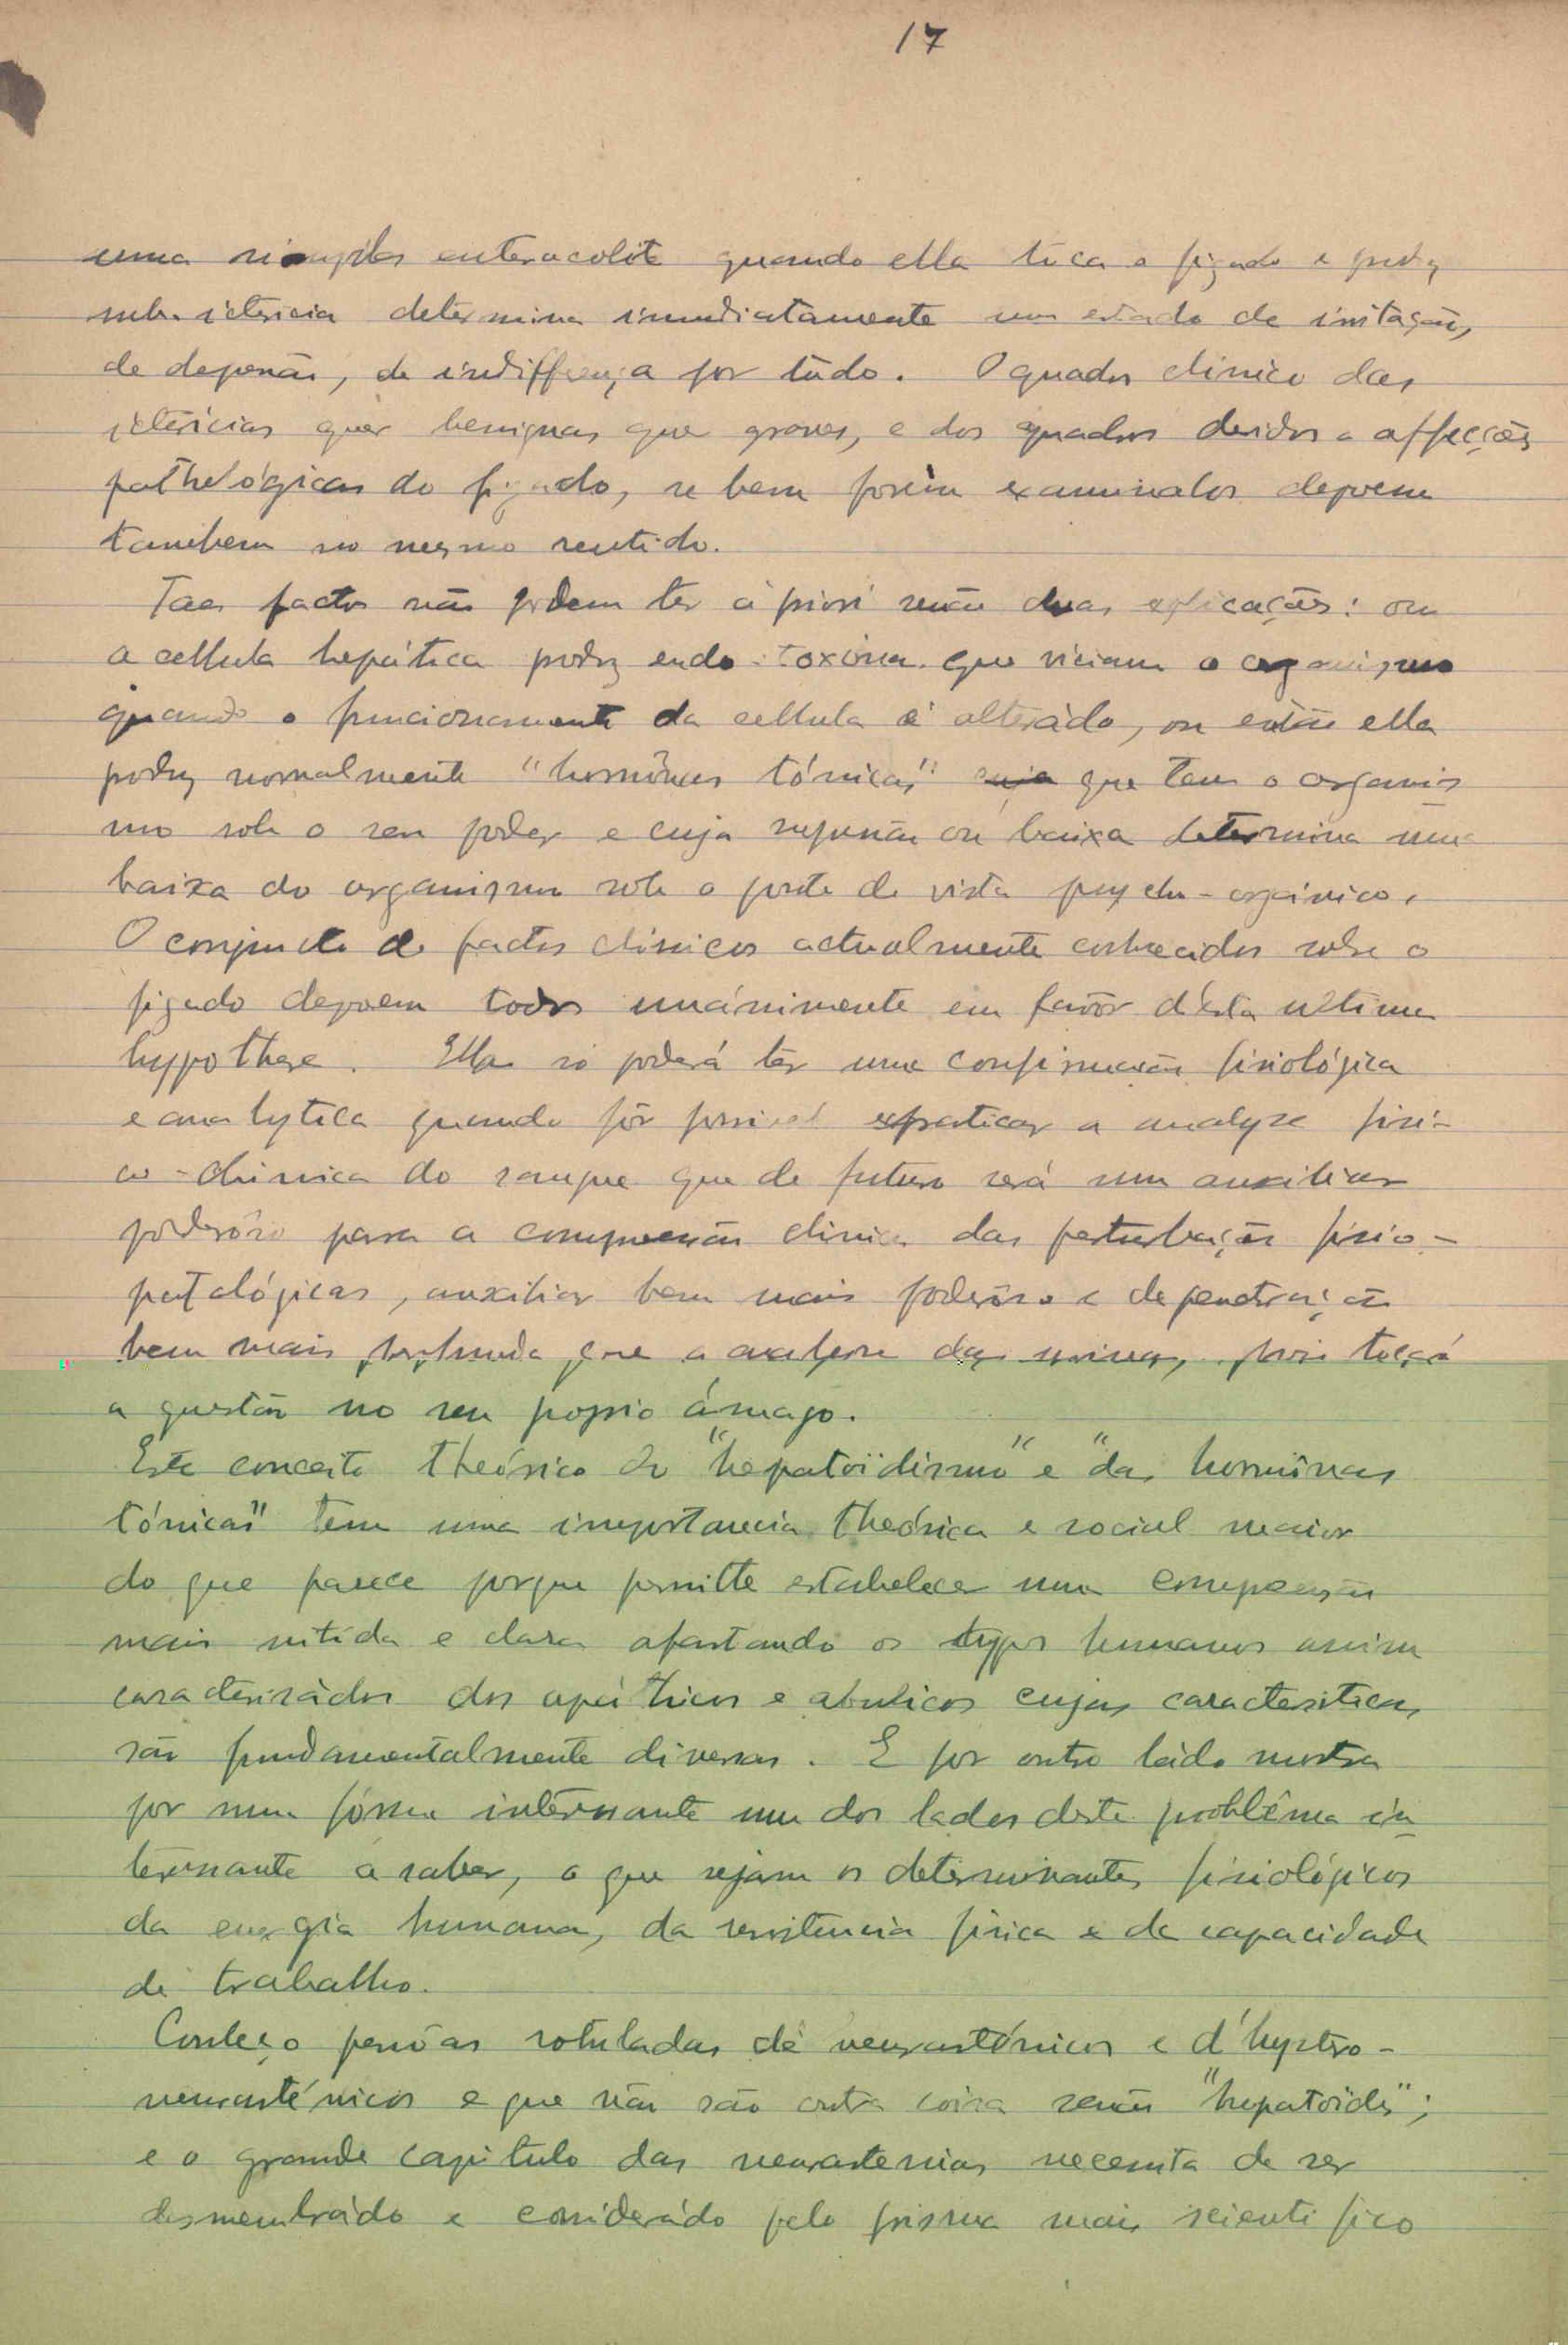 17
uma simples enterocolite quando ella toca o figado e produz
sub-ictericia determina immediatamente um estado de irritação,
de depressão, de indifferença por tudo. O quadro clinico das
ictericias quer benignas quer graves, e dos quadros devidos a affecções
pathológicas do figado, se bem forem examinados depoem
tambem no mesmo sentido.
Taes factos não podem ter à priori senão duas explicações: ou
a cellula hepática produz endo-toxinas que viciam o organismo
quando o funcionamento da cellula é alterádo, ou então ella
produz normalmente "hormônas tónicas" cuja que tem o organis
mo sob o seu poder e cuja supressão ou baixa determina uma
baixa do organismo sob o ponto de vista psycho-orgánico.
O conjuncto de factos clinicos actualmente conhecidos sobre o
figado depoem todos unánimente em favôr d'ésta ultima
hypothese. Ella só poderá têr uma confirmação fisiológica
e analytica quando fôr possivel praticar a analyse fisi-
co-chimica do sangue que de futuro será um auxiliar
poderôso para a compreensão clinica das perturbações fisio-
patológicas, auxiliar bem mais poderôso e de penetração
bem mais profunda que a analyse das urinas, pois tocará
a questão no seu proprio ámago.
Este conceito theórico do "hepatoïdismo" e "das hormônas
tónicas" tem uma importancia theórica e social maior
do que parece porque permitte estabelecer uma compreensão
mais nitida e clara afastando os typos humanos assim
caracterisádos dos apáthicos e abulicos cujas caracteristicas
são fundamentalmente diversas. E por outro ládo mostra
por uma fórma interessante um dos lados deste problêma in
teressante a saber, o que sejam os determinantes fisiológicos
da energia humana, da resistencia fisica e da capacidade
de trabalho.
Conheço pessôas rotuladas de neurasténicos e d'hystero-
neurasténicos e que não são outra coisa senão "hepatoïdes";
e o grande capitulo das neurastenias necessita de ser
desmembrádo e considerádo pelo prisma mais scientifico